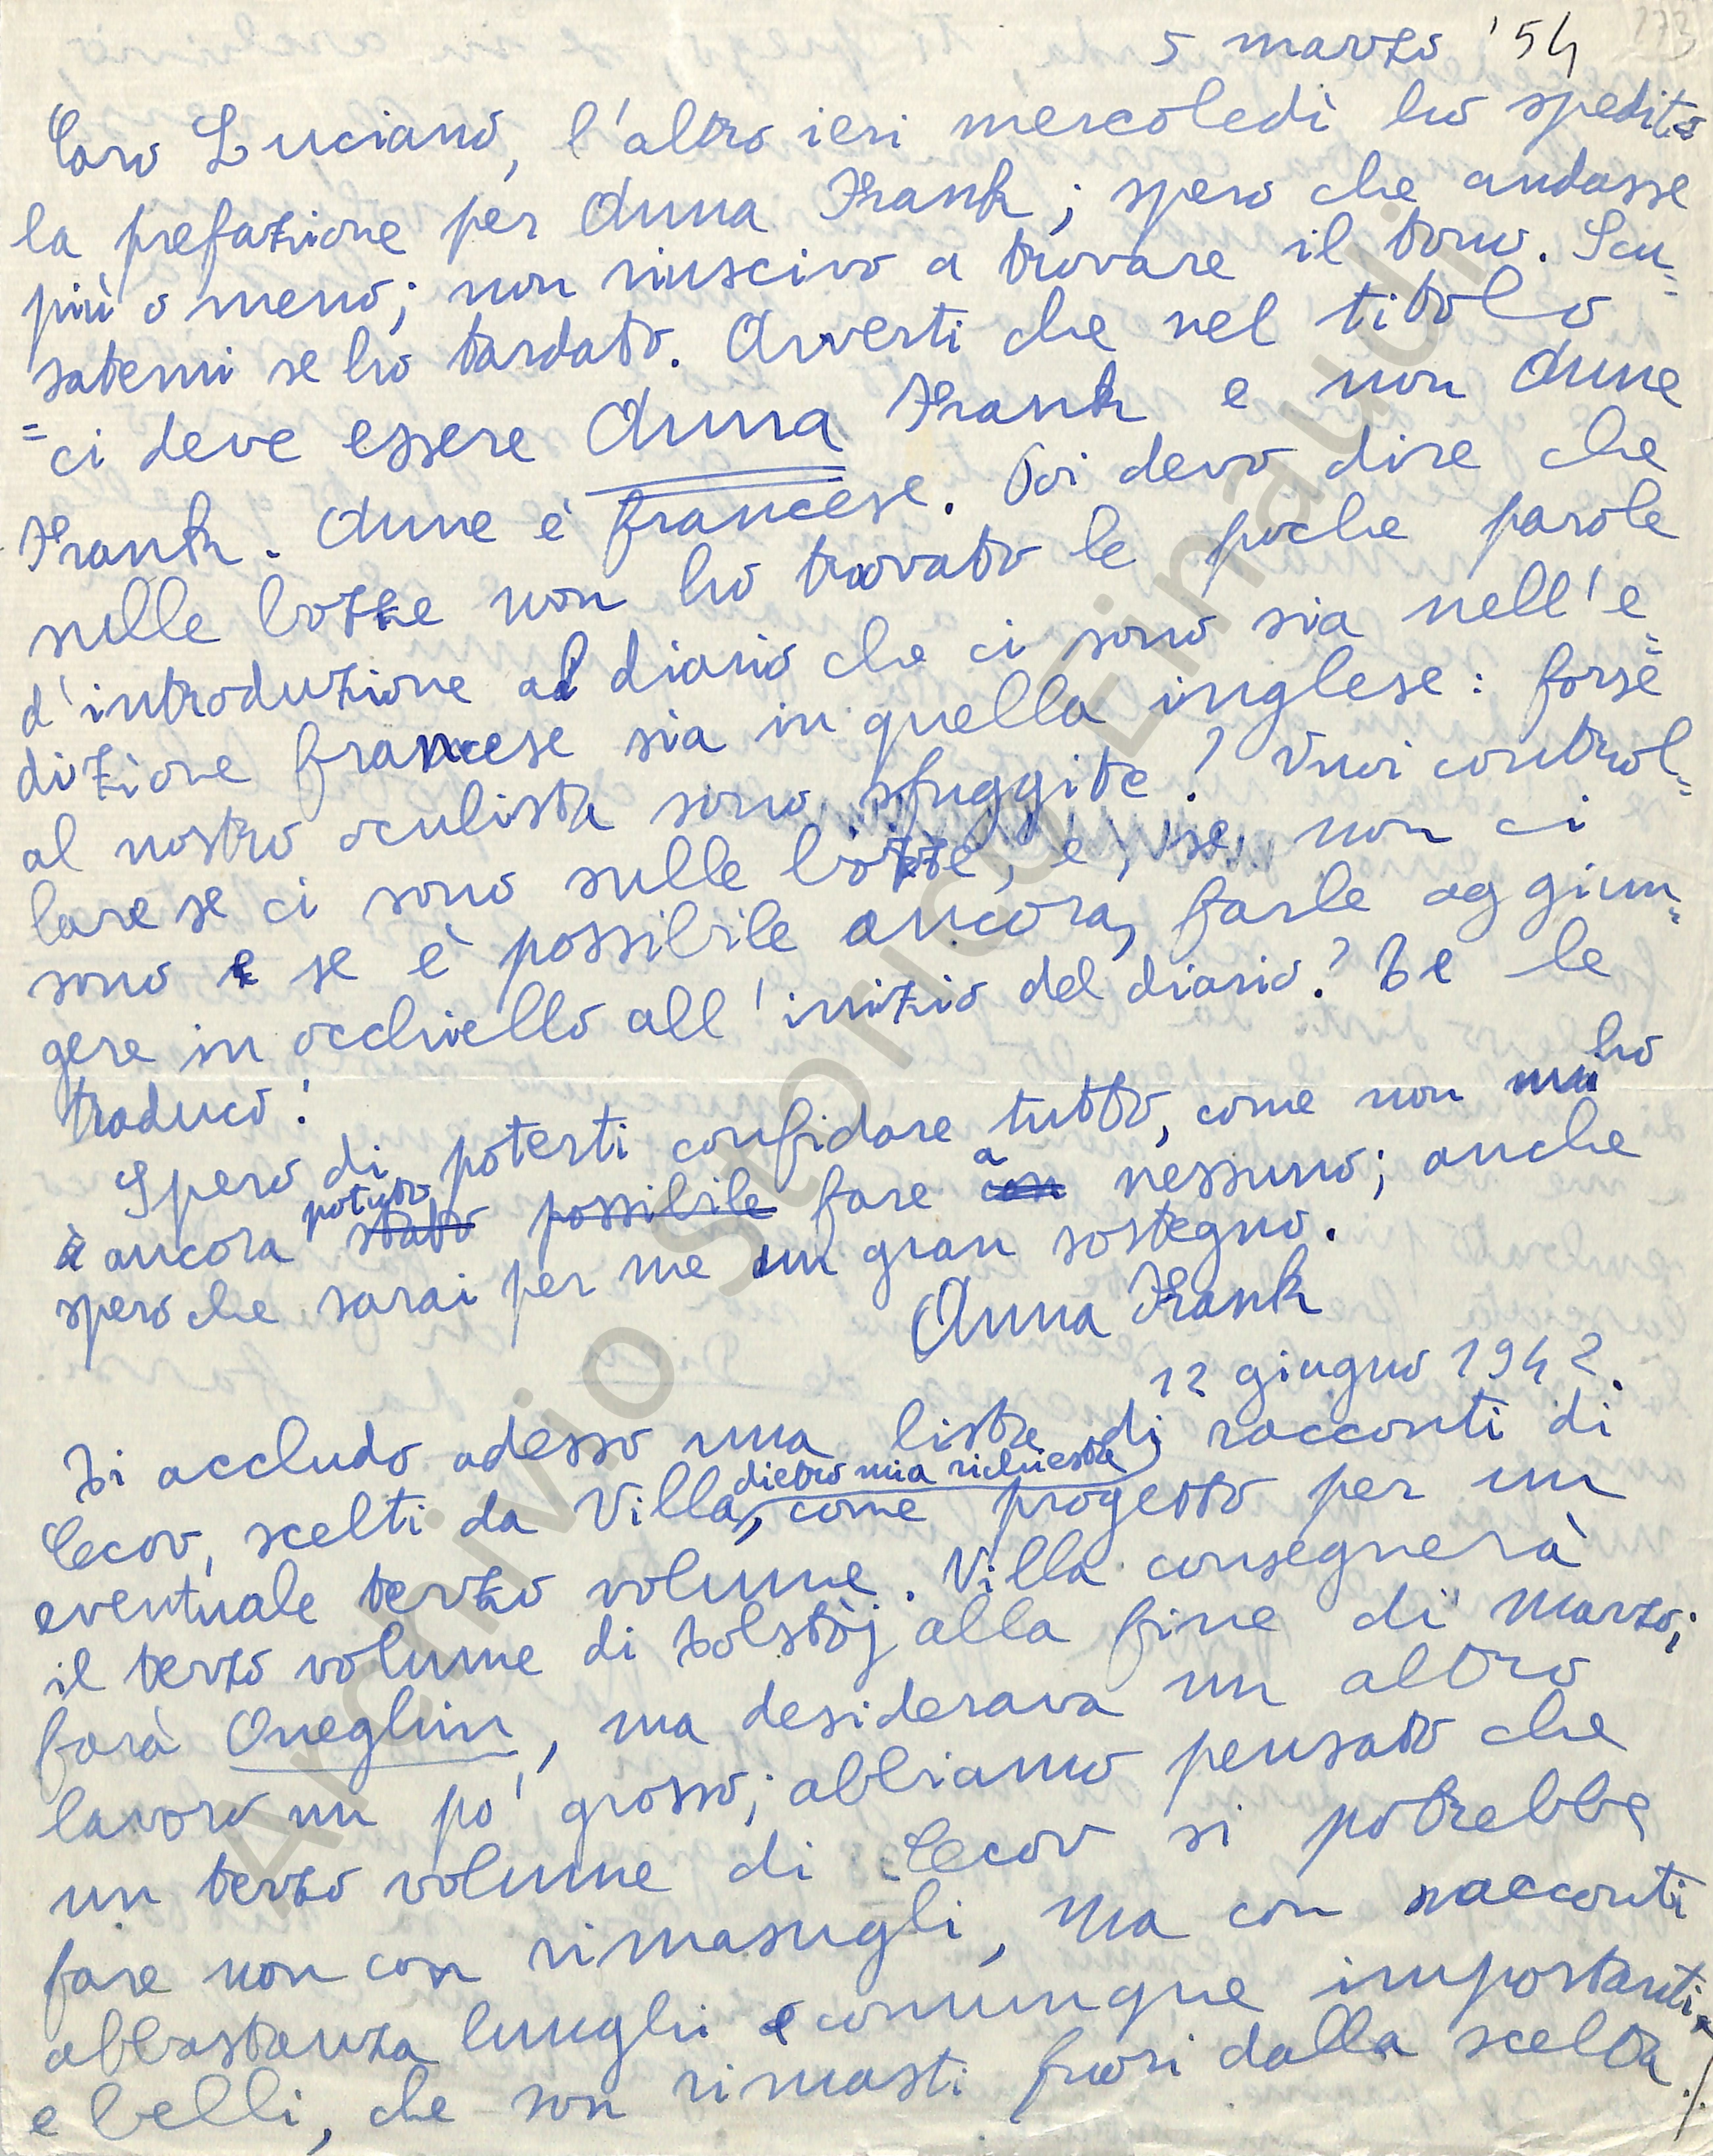 173
5 marzo '54
Caro Luciano, l'altro ieri mercoledì ho spedito
la prefazione per Anna Frank; spero che andasse
più o meno; non riuscivo a trovare il tono. Scu=
satemi se ho tardato. Avverti che nel titolo
=ci deve essere Anna Frank e non Anne
Frank. Anne è francese. Poi devo dire che
sulle bozze non ho trovato le poche parole
d'introduzione al diario che ci sono sia nell'e=
dizione francese sia in quella inglese: forse
al nostro oculista sono sfuggite? Vuoi control=
lare se ci sono sulle bozze, e, se non ci
sono e se è possibile ancora, farle aggiun=
gere in occhiello all'inizio del diario? Te le
traduco:
Spero di poterti confidare tutto, come non ho
ancora potuto stato possibile fare a con nessuno; anche
spero che sarai per me un gran sostegno.
Anna Frank
12 giugno 1942.
Ti accludo adesso una lista di racconti di
Cecov, scelti da Villa, dietro mia richiesta, come progetto per un
eventuale terzo volume. Villa consegnerà
il terzo volume di Tolstòj alla fine di marzo;
farà Oneghin, ma desiderava un altro
lavoro un po' grosso; abbiamo pensato che
un terzo volume di Cecov si potrebbe
fare non con rimasugli, ma con racconti
abbastanza lunghi e comunque importanti,
e belli, che son rimasti fuori dalla scelta
./.
Archivio Storico Einaudi